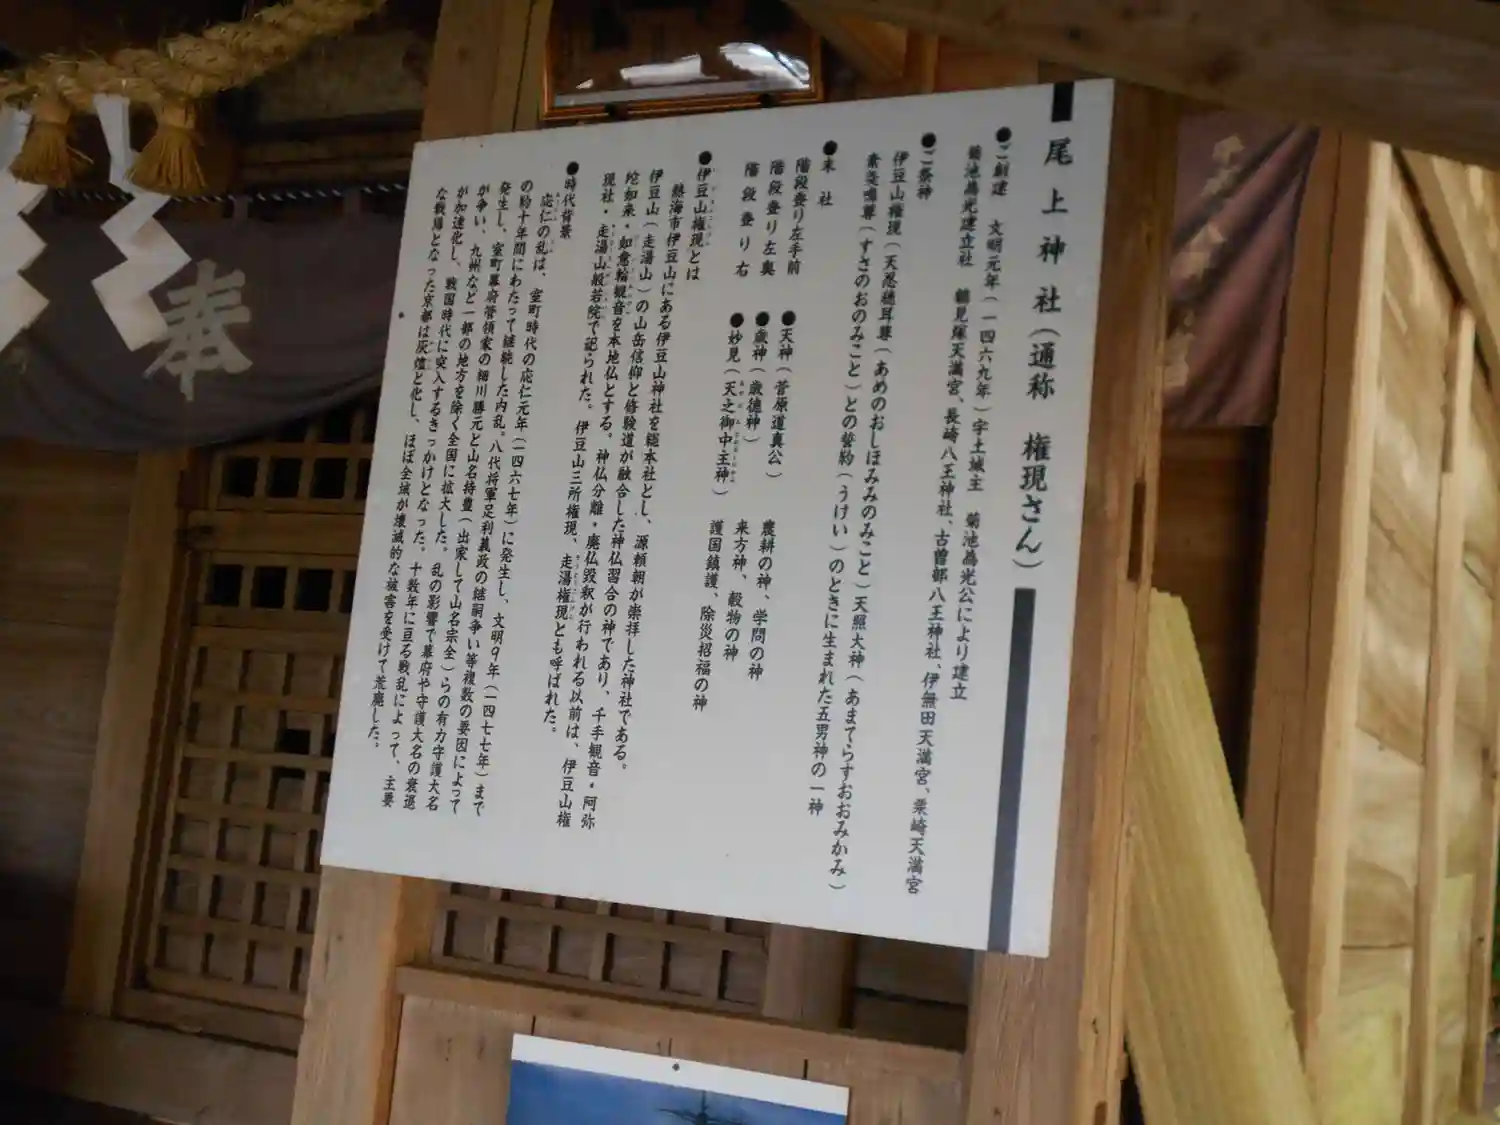 尾上神社（通称　権現さん）
●ご創建　文明元年（一四六九年）宇土城主　菊池為光公により建立
菊池為光建立社　鶴見塚天満宮、長崎八王神社、古曽部八王神社、伊無田天満宮、栗崎天満宮
●ご祭神
伊豆山権現（天忍穂耳尊（あめのおしほみみのみこと）天照大神（あまてらすおおみかみ）
素戔嗚尊（すさのおのみこと）との誓約（うけい）のときに生まれた五男神の一神
●末社
階段登り左手前　●天神（菅原道真公）　農耕の神、学問の神
階段登り左奥　●歳神（歳徳神）　来方神、穀物の神
階段登り右　●妙見（天之御中主神）　護国鎮護、除災招福の神
●伊豆山権現とは
熱海市伊豆山にある伊豆山神社を総本社とし、源頼朝が崇拝した神社である。
伊豆山（走湯山）の山岳信仰と修験道が融合した神仏習合の神であり、千手観音・阿弥
陀如来・如意輪観音を本地仏とする。神仏分離・廃仏毀釈が行われる以前は、伊豆山権
現社・走湯山般若院で祀られた。伊豆山三所権現、走湯権現とも呼ばれた。
●時代背景
応仁の乱は、室町時代の応仁元年（一四六七年）に発生し、文明９年（一四七七年）まで
の約十年間にわたって継続した内乱。八代将軍足利義政の継嗣争い等複数の要因によって
発生し、室町幕府管領家の細川勝元と山名持豊（出家して山名宗全）らの有力守護大名
が争い、九州など一部の地方を除く全国に拡大した。乱の影響で幕府や守護大名の衰退
が加速化し、戦国時代に突入するきっかけとなった。十数年に亘る戦乱によって、主要
な戦場となった京都は灰燼と化し、ほぼ全域が壊滅的な被害を受けて荒廃した。
奉